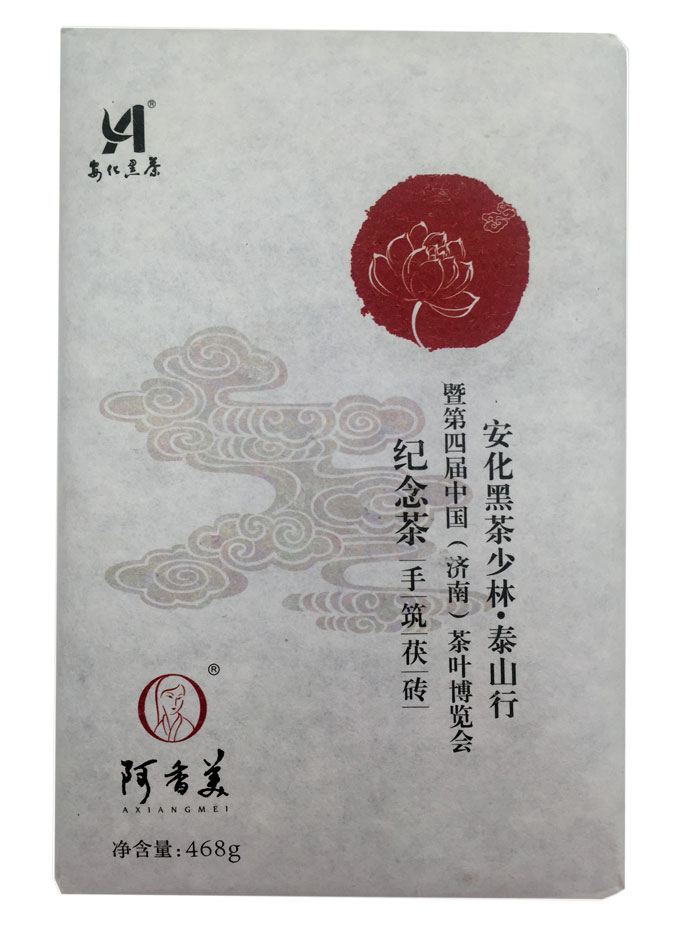 ®
安化黑茶
安化黑茶少林·泰山行
暨第四届中国（济南）茶叶博览会
纪念茶
手筑茯砖
®
阿香美
AXIANGMEI
净含量：468g